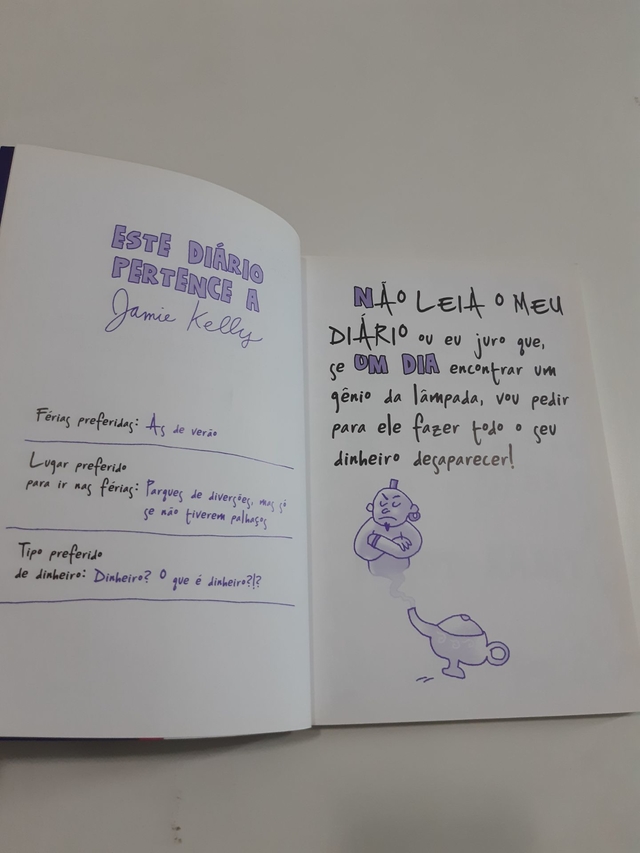 ESTE DIÁRIO
PERTENCE A
Jamie Kelly
Férias preferidas: As de verão
Lugar preferido
para ir nas férias: Parques de diversões, mas só
se não tiverem palhaços
Tipo preferido
de dinheiro: Dinheiro? O que é dinheiro?!?
NÃO LEIA O MEU
DIÁRIO ou eu juro que,
se UM DIA encontrar um
gênio da lâmpada, vou pedir
para ele fazer todo o seu
dinheiro desaparecer!